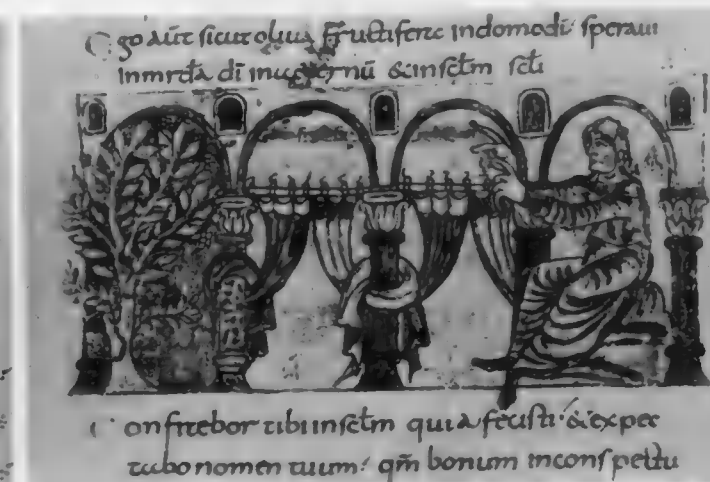 Ego aūt sicut oliua fructifera indomodī speraui
inmīdā dī inaeternū & insclm scli
Confitebor tibi insclm quia fecisti & expec
tabo nomen tuum qm̄ bonum inconspectu